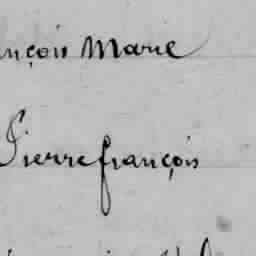 ançois Marie
Pierre françois